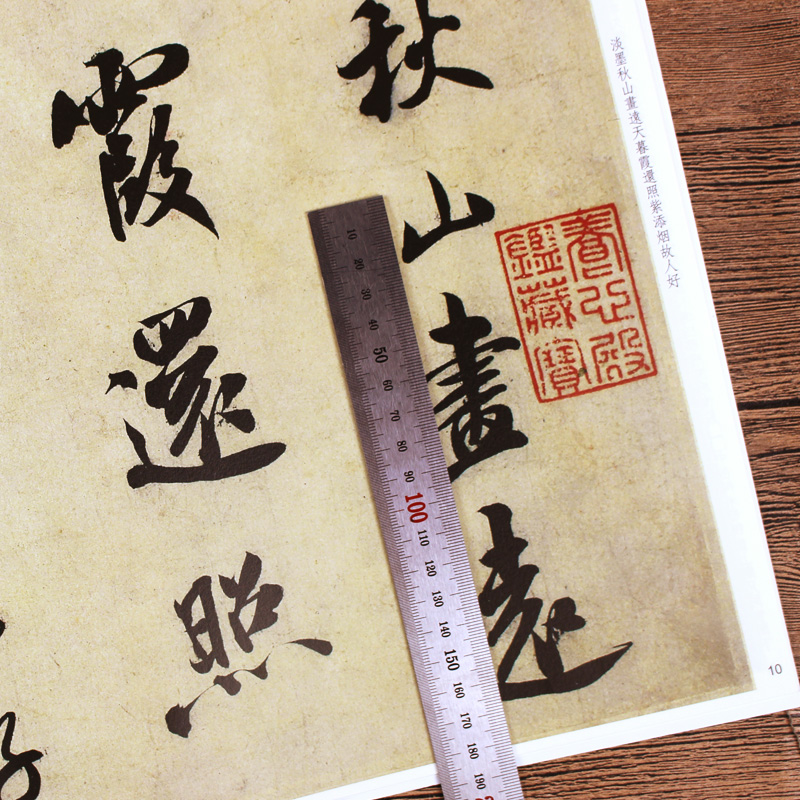 淡墨秋山畫遠天暮霞還照紫添烟故人好
秋山畫遠
霞還照
好
養心殿
鑑藏寶
10
10
20
30
40
50
60
70
80
90
100
110
120
130
140
150
160
170
180
190